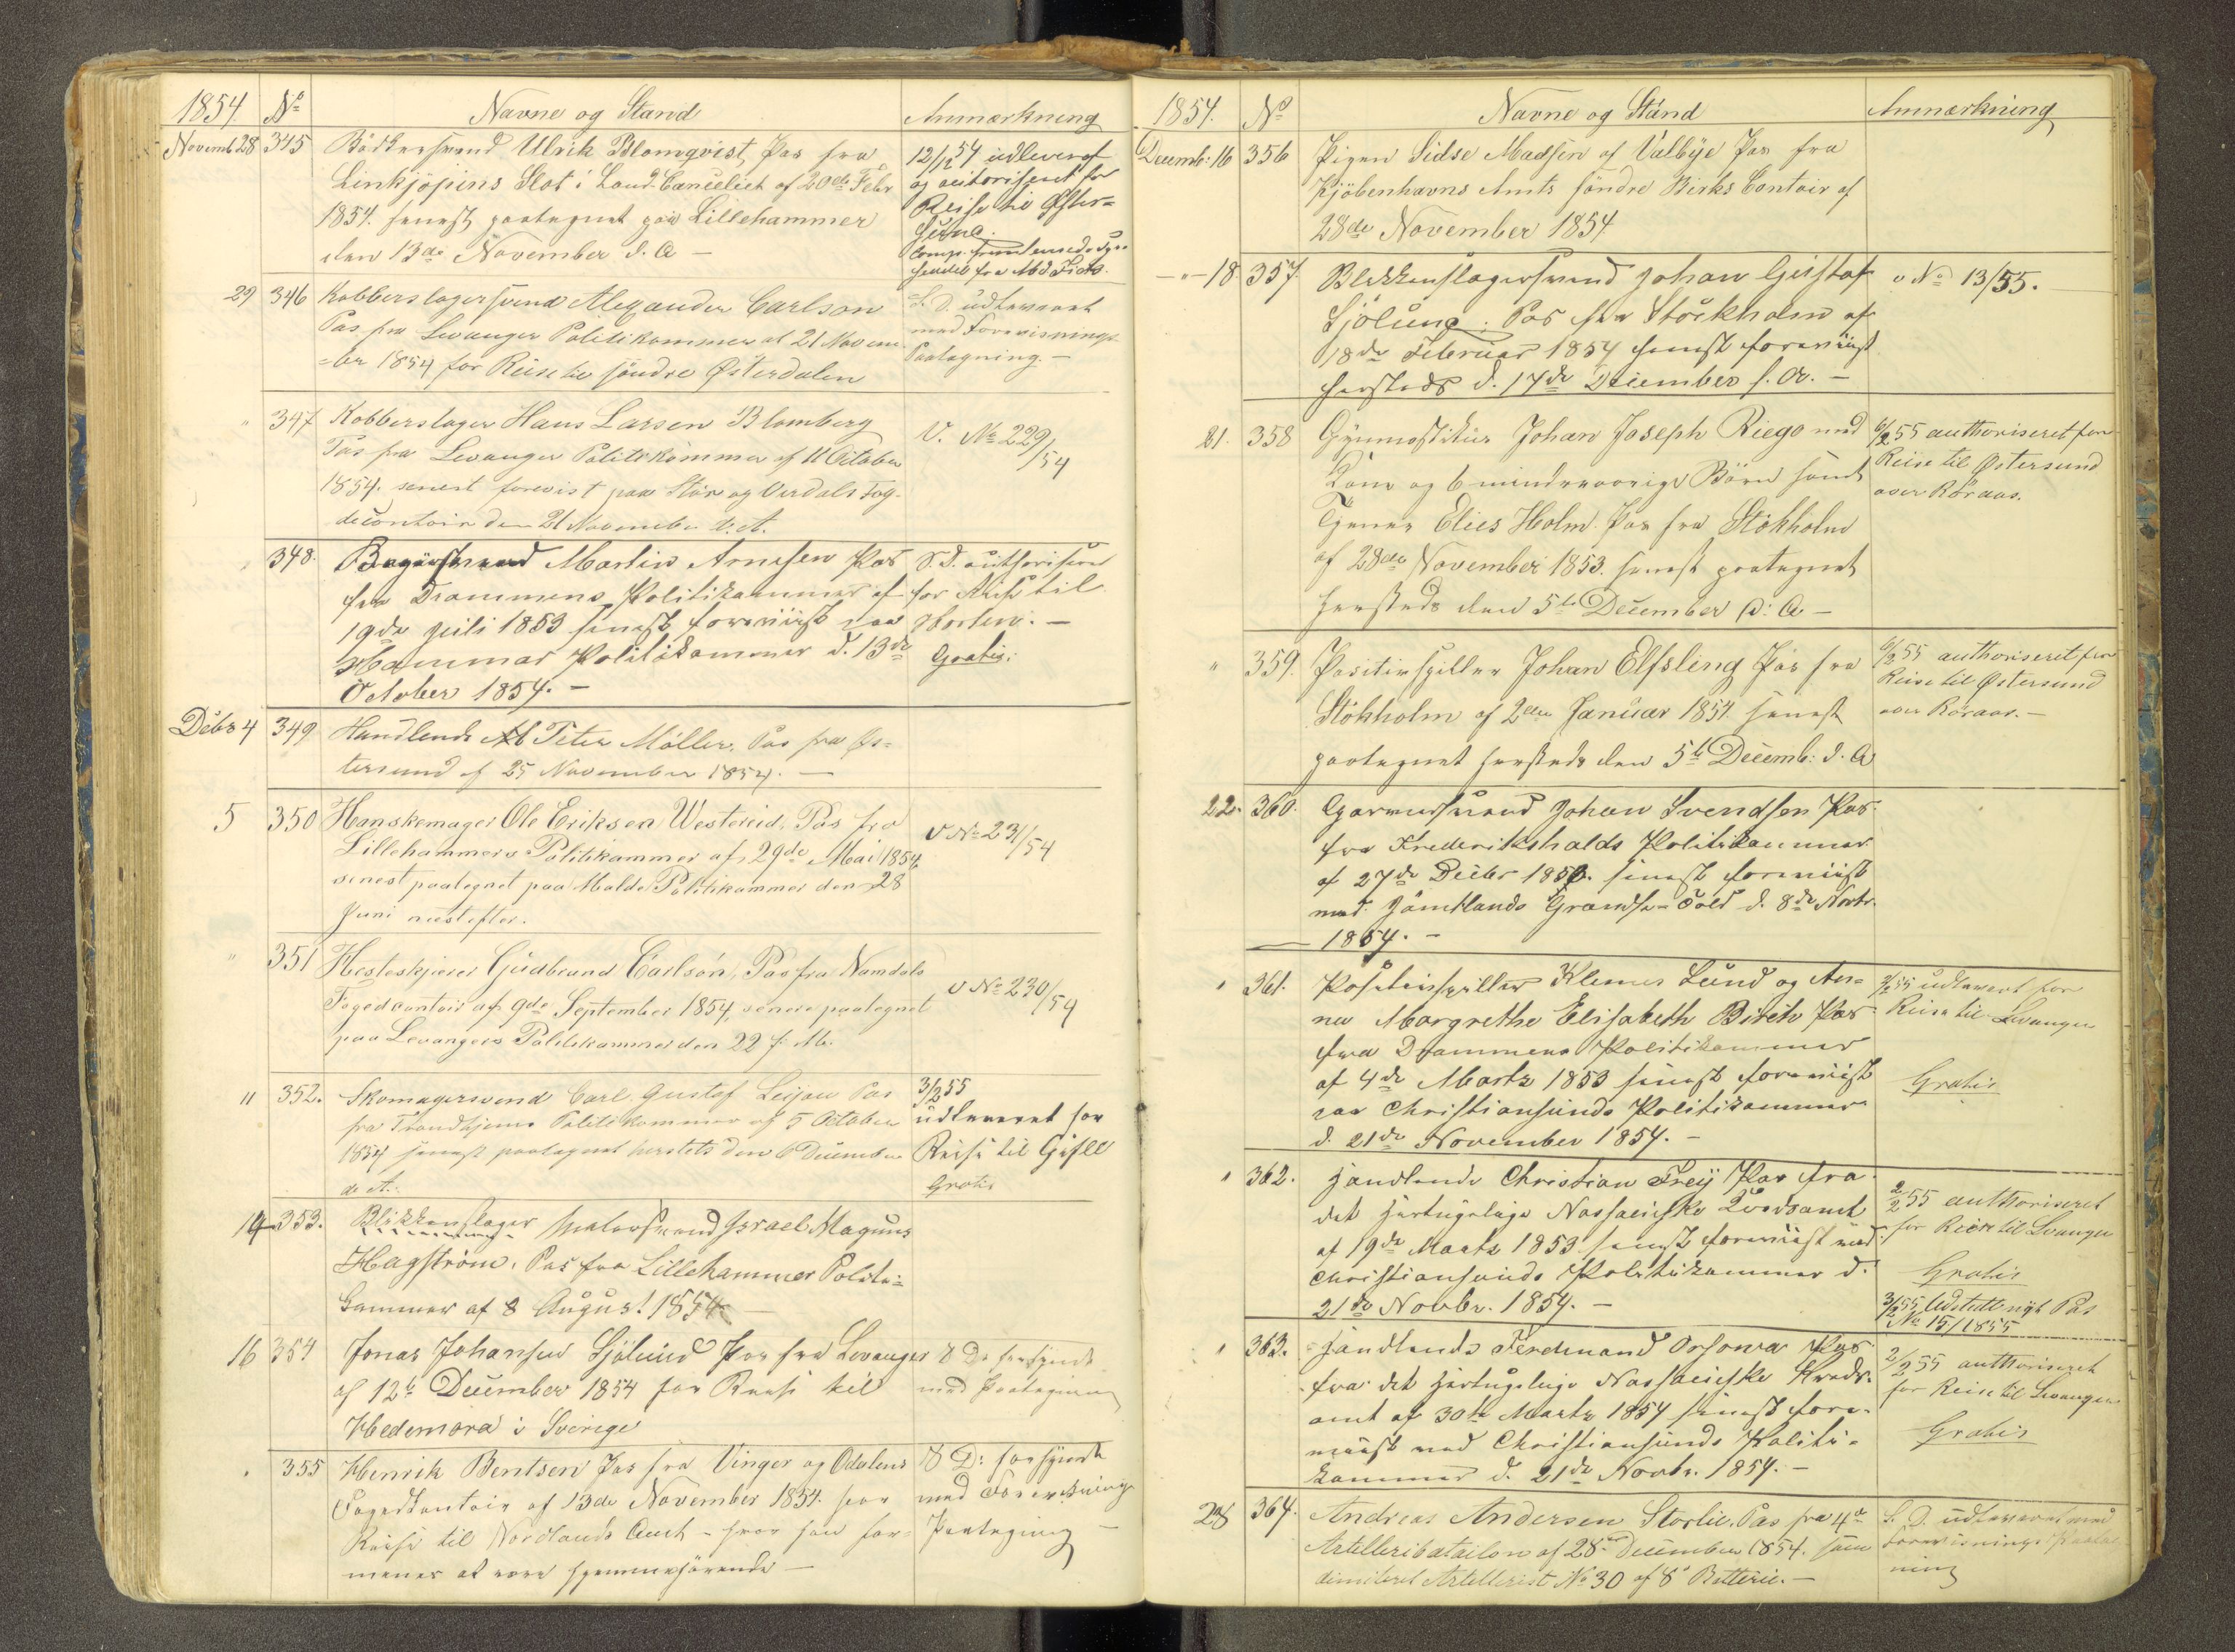 1854 No Navne og Stand Anmærkning
Novemb 28 345 Bødkersvend Ulrik Blomqvist, Pas fra
Linkjöpings Slot i Land Cancelliet af 20de Febr
1854. senest paategnet paa Lillehammer
den 13de November d. A –
12/12 54 udleveret
og autoriseret for
Reise til Øster=
sund.
29 346 Kobberslagersvend Alexander Carlson
Pas fra Levanger Politikammer af 21 Novem
=ber 1854 for Reise til söndre Österdalen
S. D. udleveret
med Forevisnings
Paategning. –
" 347 Kobberslager Hans Larsen Blomberg
Pas fra Levanger Politikammer af 11 October
1854. senest forevist paa Stör og Verdals Fog-
decontoir den 21 November d. A.
V. No 229/54
" 348. Bagersvend Martin Arnesen Pas
fra Drammens Politikammer af
19de Juli 1853 senest foreviist paa
Hammer Politikammer d. 13de
October 1854. –
S. D. authoriseret
for Reise til
Horten. –
Gratis.
Debr 4 349 Handlende Ab Peter Möller. Pas fra Øs=
tersund af 25 November 1854. –
5 350 Hanskemager Ole Eriksen Westereid, Pas fra
Lillehammers Politikammer af 29de Mai 1854,
senest paategnet paa Molde Politikammer den 28
Juni næstefter.
v No 231/54
" 351 Hesteskjærer Gudbrand Carlsön, Pas fra Namdals
Fogedcontoir af 9de September 1854, senere paategnet
paa Levangers Politikammer den 22 f. M.
v No 230/54
" 352. Skomagersvend Carl Gustaf Leijon Pas
fra Trondhjems Politikammer af 5 October
1854 senest paategnet herstets den 6 December
d. A.
3/2 55
udleveret for
Reise til Gefle
Gratis
14 353. Blikkenslager Malersvend Israel Magnus
Hagström. Pas fra Lillehammer Politi=
kammer af 8 August 1854 –
16 354 Jonas Johansen Sjölund Pas fra Levanger
af 12te December 1854 for Reise til
Hedemora i Sverige
S D. forsynet
med Paategning
" 355 Henrik Bentsen Pas fra Vinger og Odalens
Fogedkontoir af 13de November 1854. for
Reise til Nordlands Amt – hvor han for=
menes at være hjemmehörende –
S D: forsynet
med Forevisnings
Paategning –
1854. No Navne og Stand Anmærkning
Decemb: 16 356 Pigen Sidse Madsen af Valbye Pas fra
Kjöbenhavns Amts söndre Birks Contoir af
28de November 1854
– " – 18 357. Blikkenslagersvend Johan Gustaf
Sjölung. Pas fra Stockholm af
18de Februar 1854 senest foreviist
hersteds d. 17de December s. A. –
v No 13/55.
21. 358 Gymnastikus Johan Joseph Riego med
Kone og 6 mindreaarige Börn samt
Tjener Elies Holm. Pas fra Stokholm
af 28de November 1853. senest paategnet
hersteds den 5te December d: A –
6/2 55 authoriseret for
Reise til Østersund
over Röraas.
" 359. Positivspiller Johan Elfsling Pas fra
Stokholm af 2den Januar 1854 senest
paategnet hersteds den 5te Decemb: d. A
6/2 55 authoriseret for
Reise til Østersund
over Röraas. –
22. 360. Garversvend Johan Svendsen Pas
fra Frederikshalds Politikammer
af 27de Decbr 1850. senest foreviist
ved Jämtlands Grændse-Told d. 8de Novbr.
1854. –
" 361. Positivspiller Klemes Lund og An=
na Margrethe Elisabeth Birch Pas
fra Drammens Politikammer
af 4de Marts 1853 senest foreviist
paa Christiansunds Politikammer
d. 21de November 1854. –
2/2 55 udleveret for
Reise til Levanger
Gratis
" 362. Handlende Christian Frey Pas fra
det hertugelige Nassauiske Kredsamt
af 19de Marts 1853 senest foreviist ved
Christiansunds Politikammer d.
21de Novbr. 1854. –
2/2 55 authoriseret
for Reise til Levanger
Gratis
3/2 55 Udstedt nyt Pas
No 15/1855
" 363. Handlende Ferdinand Pas
fra det hertugelige Nassauiske Kreds-
amt af 30te Marts 1854 senest fore-
viist ved Christiansunds Politi-
kammer d. 21de Novbr. 1854. –
2/2 55 authoriseret
for Reise til Levanger
Gratis
28 364. Andreas Andersen Storlie. Pas fra 4de
Artilleribatailon af 28de December 1854. som
dimiteret Artillerist No 30 af 8de Batteri. –
S. D. udleveret med
Forevisnings Paateg
ning